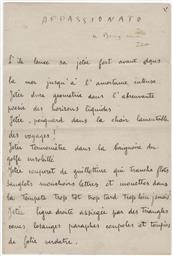 APPASSIONATO
S'il lance sa jetée fort avant dans
la mer jusqu'à l'amertume intense.
Jetée dure géométrie dans l'abreuvante
poésie des horizons liquides
Jetée, poignard dans la chair lamentable
des voyages !
Jetée Thermomètre dans la baignoire du
golfe
Jetée couperet de guillotine qui tranche flots
sanglots mouchoirs lettres et mouettes dans
la Tempête Trop tôt trop tard Trop loin jamais
Jetée ligne droite assiégée par des Triangles
cones losanges paraphes coupoles et toupies
de folie verdatre.